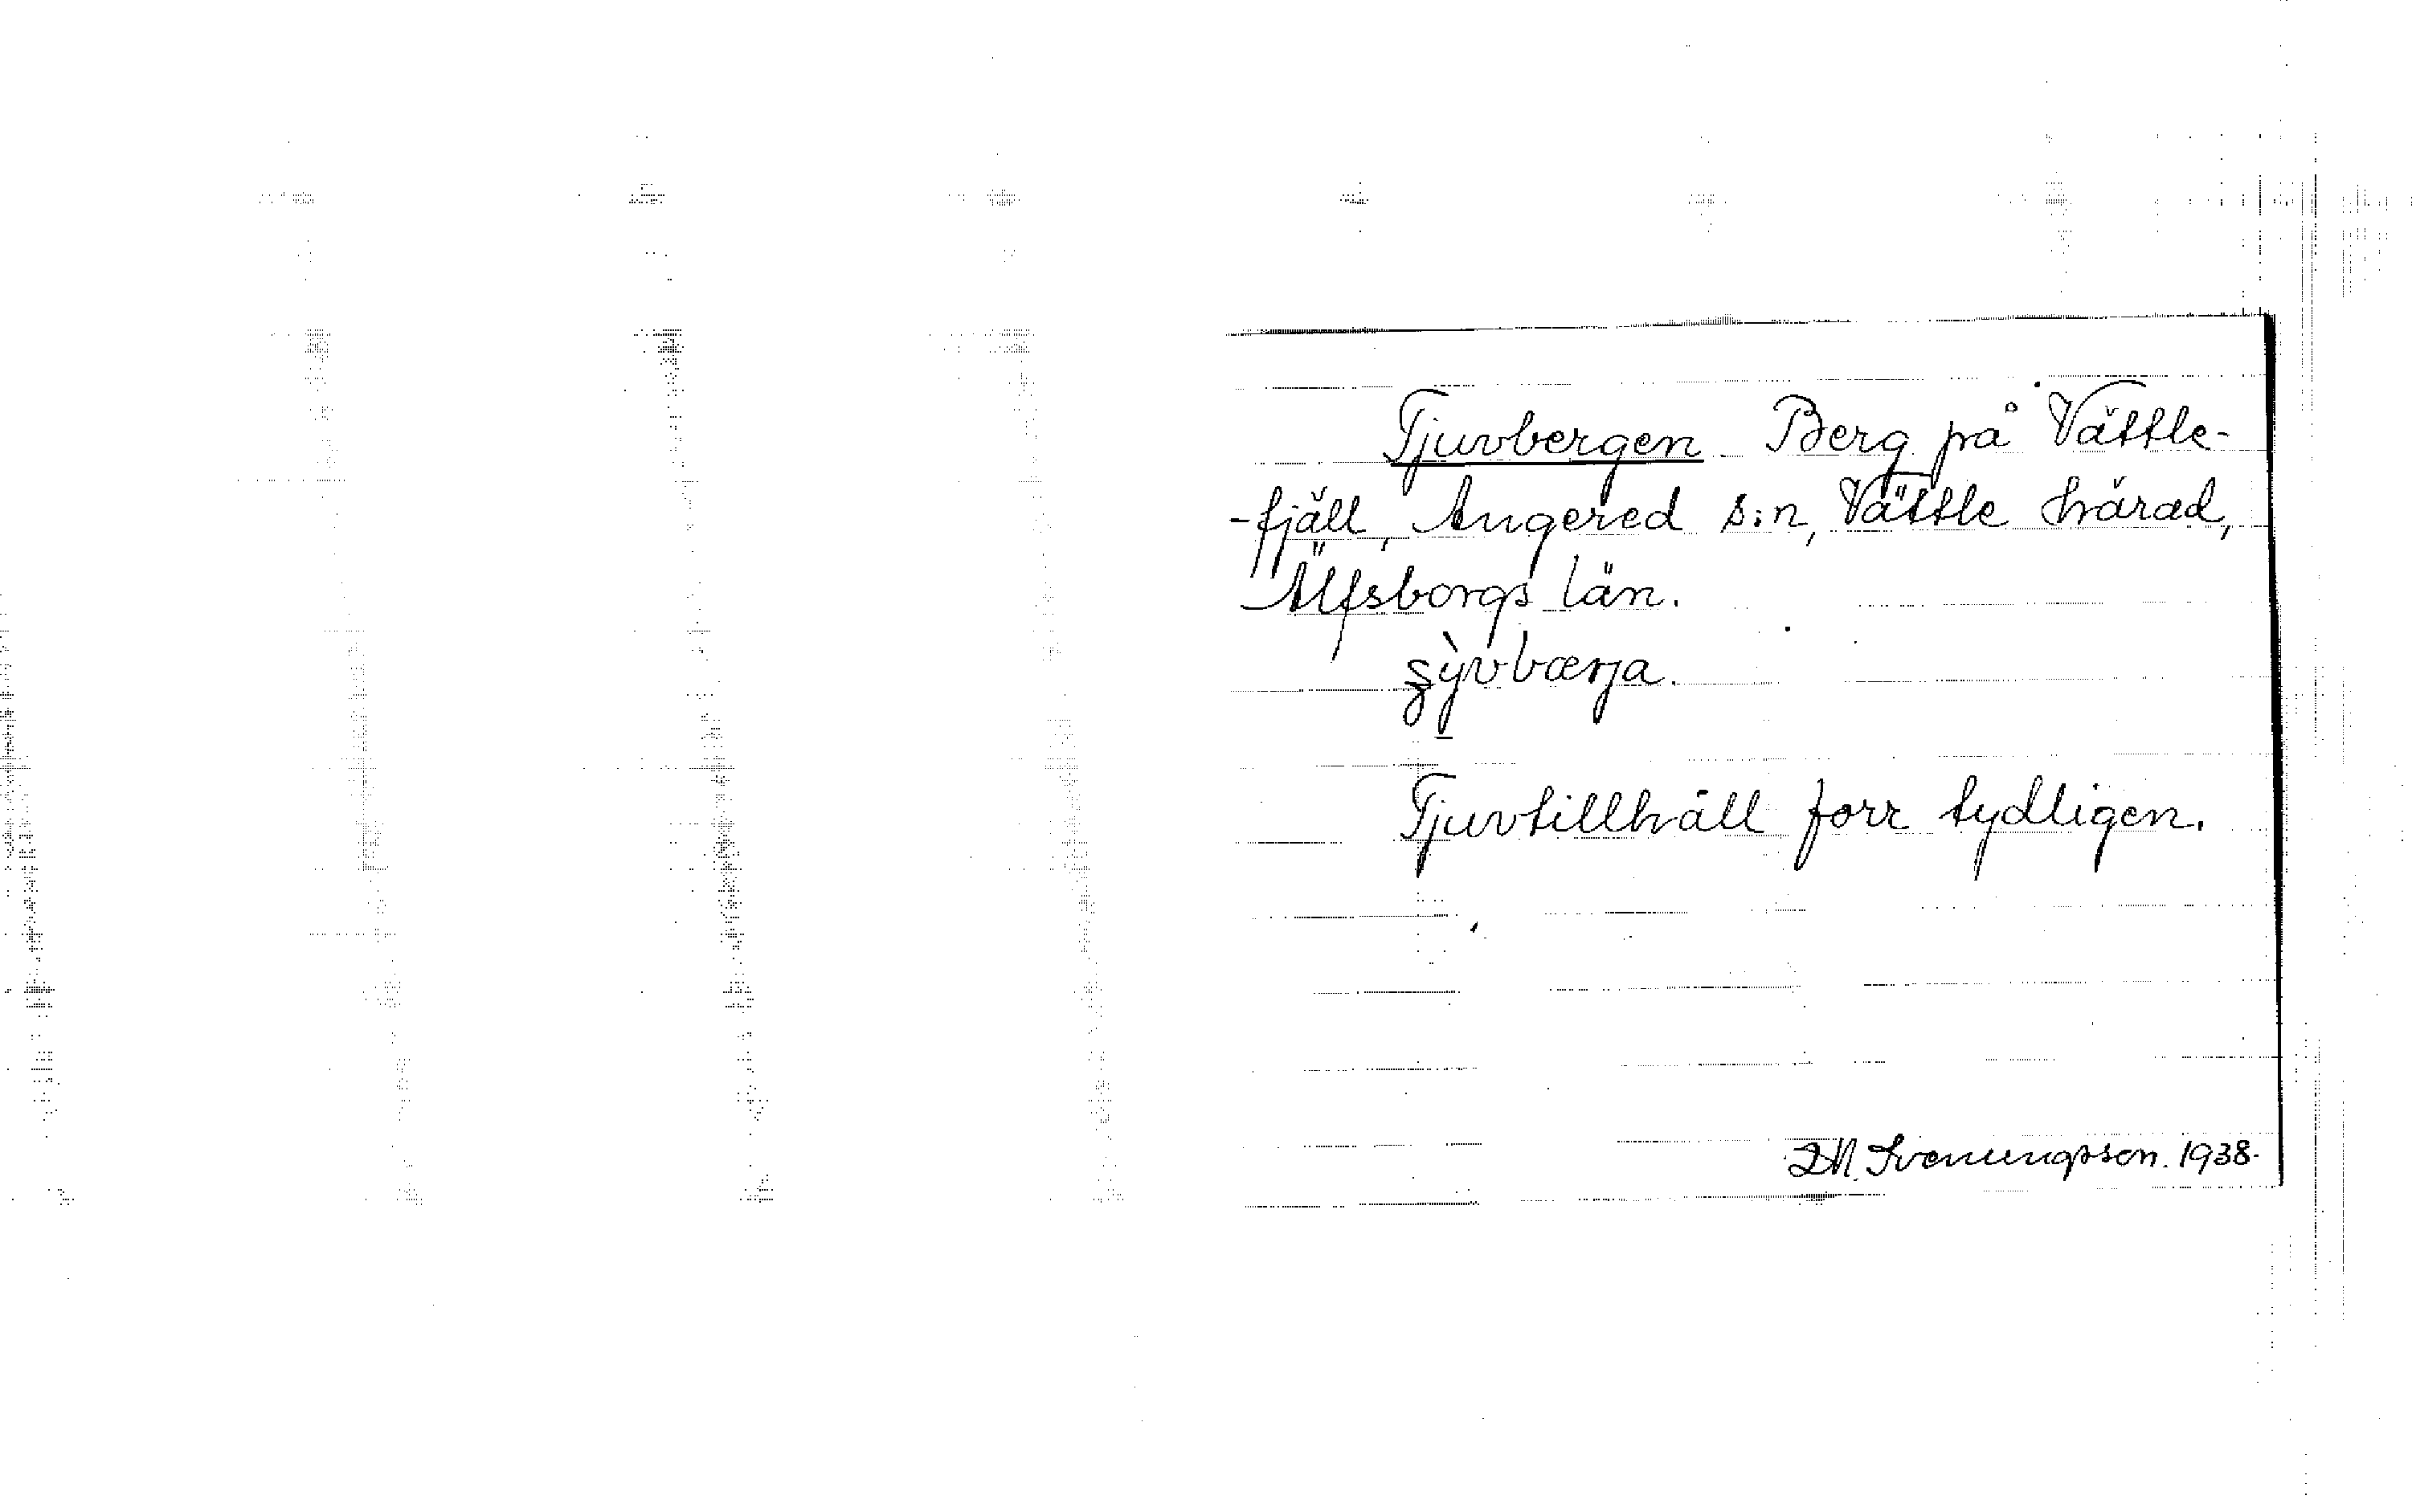 Tjuvbergen. Berg på Vättle-
-fjäll, Angered s:n, Vättle härad,
Älfsborgs län.
Tjuvtillhåll förr tydligen.
Svenungsson. 1938.